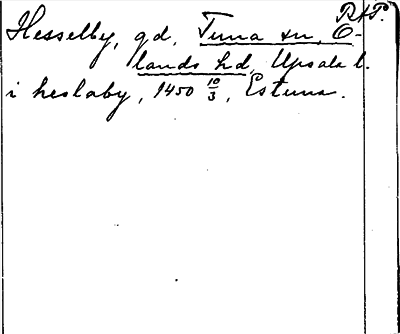 RAP.
Hesselby, gd, Tuna sn, O-
lands hd, Upsala l.
i heslaby, 1450 10/3, Estuna.